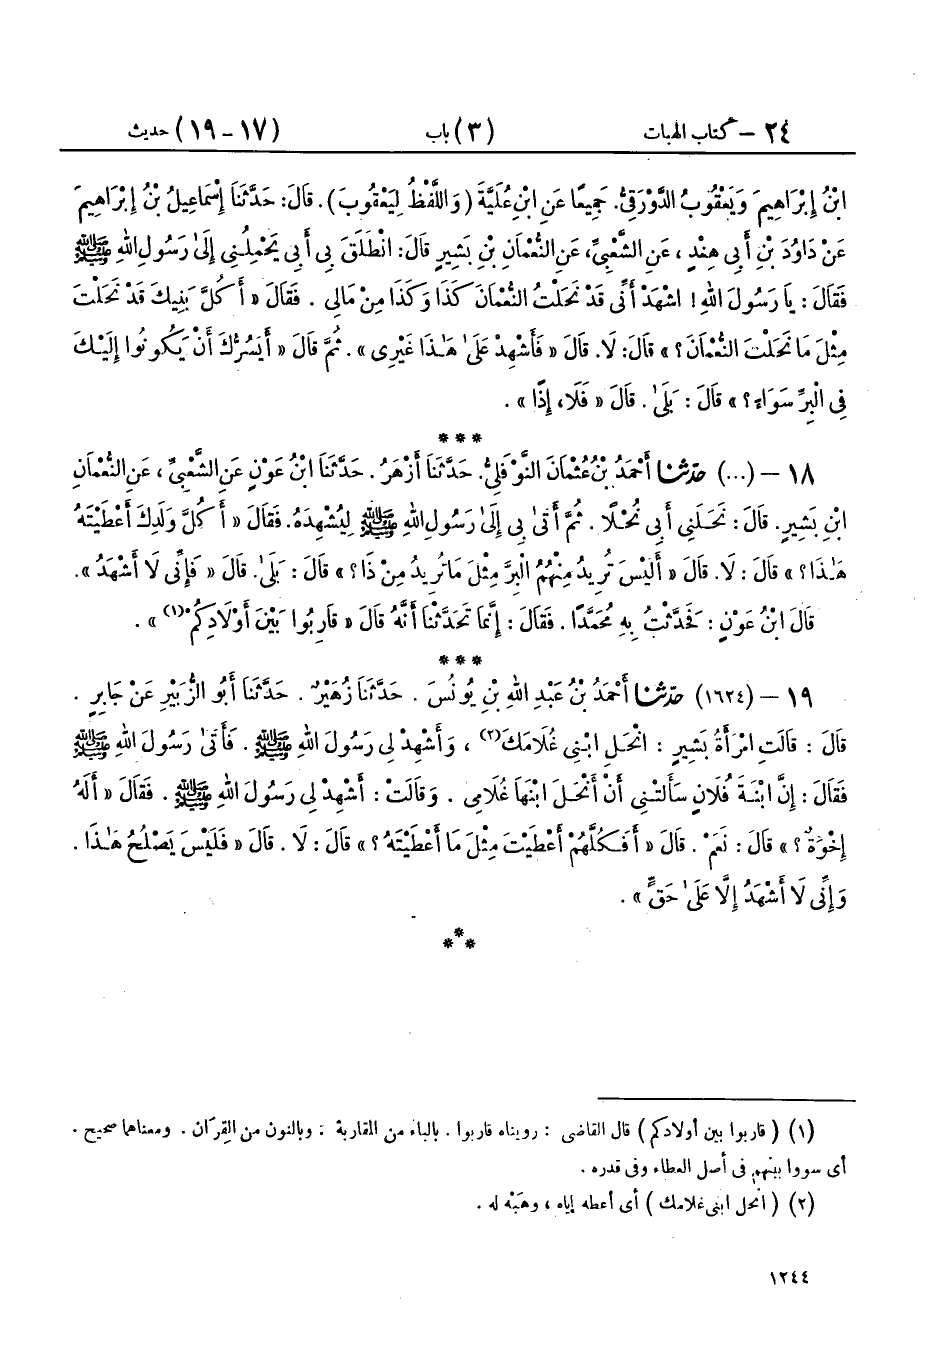 ٢٤ – كتاب الهبات (٣) باب (١٧ – ١٩) حديث
ابْنُ إِبْرَاهِيمَ وَيَعْقُوبُ الدَّوْرَقِيُّ. جَمِيعًا عَنِ ابْنِ عُلَيَّةَ (وَاللَّفْظُ لِيَعْقُوبَ). قَالَ: حَدَّثَنَا إِسْمَاعِيلُ بْنُ إِبْرَاهِيمَ
عَنْ دَاوُدَ بْنِ أَبِي هِنْدٍ ، عَنِ الشَّعْبِيِّ، عَنِ النُّعْمَانِ بْنِ بَشِيرٍ قَالَ: انْطَلَقَ بِي أَبِي يَحْمِلُنِي إِلَىٰ رَسُولِ اللهِ ﷺ
فَقَالَ : يَا رَسُولَ اللهِ ! اشْهَدْ أَنِّي قَدْ نَحَلْتُ النُّعْمَانَ كَذَا وَكَذَا مِنْ مَالِي . فَقَالَ « أَكُلَّ بَنِيكَ قَدْ نَحَلْتَ
مِثْلَ مَا نَحَلْتَ النُّعْمَانَ ؟ » قَالَ: لَا. قَالَ « فَأَشْهِدْ عَلَىٰ هَٰذَا غَيْرِي » . ثُمَّ قَالَ « أَيَسُرُّكَ أَنْ يَكُونُوا إِلَيْكَ
فِي الْبِرِّ سَوَاءً ؟ » قَالَ : بَلَىٰ . قَالَ « فَلَا، إِذًا » .
* * *
١٨ – (...) حَدَّثَنَا أَحْمَدُ بْنُ عُثْمَانَ النَّوْفَلِيُّ. حَدَّثَنَا أَزْهَرُ . حَدَّثَنَا ابْنُ عَوْنٍ عَنِ الشَّعْبِيِّ ، عَنِ النُّعْمَانِ
ابْنِ بَشِيرٍ. قَالَ : نَحَلَنِي أَبِي نُحْلًا . ثُمَّ أَتَىٰ بِي إِلَىٰ رَسُولِ اللهِ ﷺ لِيُشْهِدَهُ. فَقَالَ « أَكُلَّ وَلَدِكَ أَعْطَيْتَهُ
هَٰذَا ؟ » قَالَ : لَا. قَالَ « أَلَيْسَ تُرِيدُ مِنْهُمُ الْبِرَّ مِثْلَ مَا تُرِيدُ مِنْ ذَا ؟ » قَالَ : بَلَىٰ. قَالَ « فَإِنِّي لَا أَشْهَدُ ».
قَالَ ابْنُ عَوْنٍ : فَحَدَّثْتُ بِهِ مُحَمَّدًا . فَقَالَ : إِنَّمَا تَحَدَّثْنَا أَنَّهُ قَالَ « قَارِبُوا بَيْنَ أَوْلَادِكُمْ(١) » .
* * *
١٩ – (١٦٢٤) حَدَّثَنَا أَحْمَدُ بْنُ عَبْدِ اللهِ بْنِ يُونُسَ . حَدَّثَنَا زُهَيْرٌ . حَدَّثَنَا أَبُو الزُّبَيْرِ عَنْ جَابِرٍ .
قَالَ : قَالَتِ امْرَأَةُ بَشِيرٍ : انْحَلِ ابْنِي غُلَامَكَ(٢) ، وَأَشْهِدْ لِي رَسُولَ اللهِ ﷺ . فَأَتَىٰ رَسُولَ اللهِ ﷺ
فَقَالَ : إِنَّ ابْنَةَ فُلَانٍ سَأَلَتْنِي أَنْ أَنْحَلَ ابْنَهَا غُلَامِي . وَقَالَتْ : أَشْهِدْ لِي رَسُولَ اللهِ ﷺ . فَقَالَ « أَلَهُ
إِخْوَةٌ ؟ » قَالَ : نَعَمْ . قَالَ « أَفَكُلَّهُمْ أَعْطَيْتَ مِثْلَ مَا أَعْطَيْتَهُ ؟ » قَالَ : لَا . قَالَ « فَلَيْسَ يَصْلُحُ هَٰذَا .
وَإِنِّي لَا أَشْهَدُ إِلَّا عَلَىٰ حَقٍّ » .
***
(١) ( قاربوا بين أولادكم ) قال القاضى : رويناه قاربوا . بالباء من المقاربة ؛ وبالنون من القِرَان . ومعناهما صحيح .
أى سووا بينهم فى أصل العطاء وفى قدره .
(٢) ( انحل ابنى غلامك ) أى أعطه إياه ، وهَبْه له .
١٢٤٤